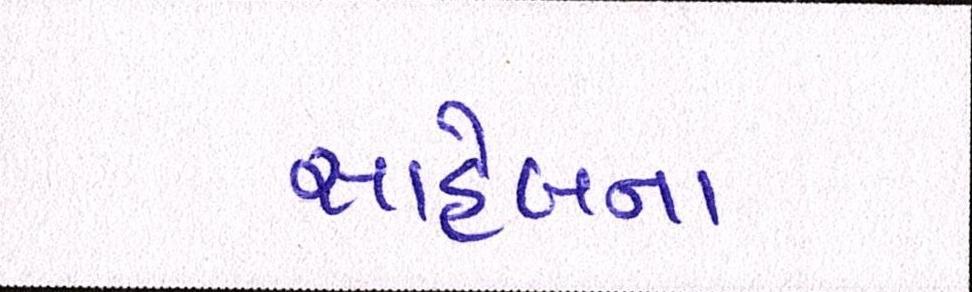 સાહેબના